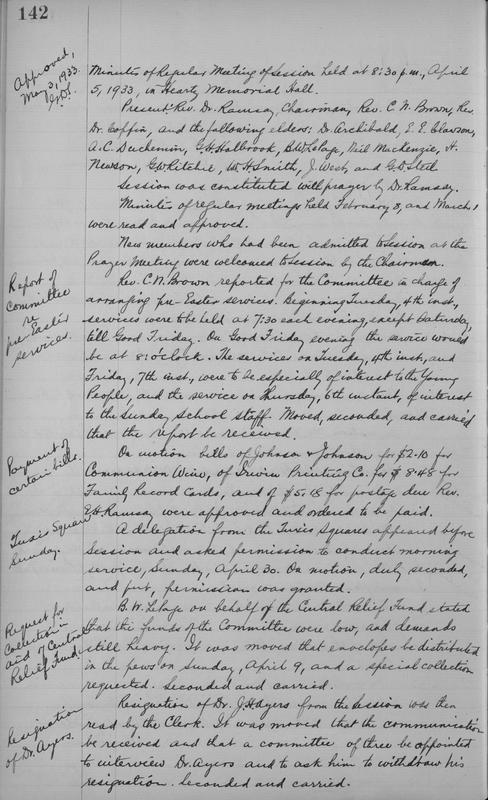 142
Approved,
May 3, 1933.
Minutes of Regular Meeting of Session held at 8:30 p.m., April
5, 1933, in Hearty Memorial Hall.
Present: Rev. Dr. Ramsay, Chairman, Rev. C.N. Brown, Rev.
Dr. Coffin, and the following elders: Dr. Archibald, E.E. Clawson,
A.C. Duchemin, G.H. Halbrook, B.W. LePage, Neil Mackenzie, H.
Newson, G.W. Ritchie, W.H. Smith, J. West, and G.D. Steel
Session was constituted with prayer by Dr. Ramsay.
Minutes of regular meetings held February 8, and March 1
were read and approved.
New members who had been admitted to Session at the
Prayer Meeting were welcomed to Session by the Chairman.
Report of
Committee
re
pre-Easter
services.
Rev. C.N. Brown reported for the Committee in charge of
arranging pre-Easter services. Beginning Tuesday, 4th inst.,
services were to be held at 7:30 each evening, except Saturday,
till Good Friday. On Good Friday evening the service would
be at 8:0'clock. The services on Tuesday, 4th inst., and
Friday, 7th inst., were to be especially of interest to the Young
People, and the service on Thursday, 6th instant, of interest
to the Sunday School staff. Moved, seconded, and carried
that the report be received.
Payment of
certain bills.
On motion bills of Johnson & Johnson for $2.10 for
Communion Wine, of Irwin Printing Co. for $8.48 for
Family Record Cards, and of $5.18 for postage due Rev.
E.H. Ramsay were approved and ordered to be paid.
Tuxis Square
Sunday.
A delegation from the Tuxis Squares appeared before
Session and asked permission to conduct morning
service, Sunday, April 30. On motion, duly seconded,
and put, permission was granted.
Request for
Collection in
aid of Central
Relief Fund.
B.W. LePage on behalf of the Central Relief Fund stated
that the funds of the Committee were low, and demands
still heavy. It was moved that envelopes be distributed
in the pews on Sunday, April 9, and a special collection
requested. Seconded and carried.
Resignation
of Dr. Ayers.
Resignation of Dr. J.H. Ayers from the Session was then
read by the Clerk. It was moved that the communication
be received and that a committee of three be appointed
to interview Dr. Ayers and to ask him to withdraw his
resignation. Seconded and carried.